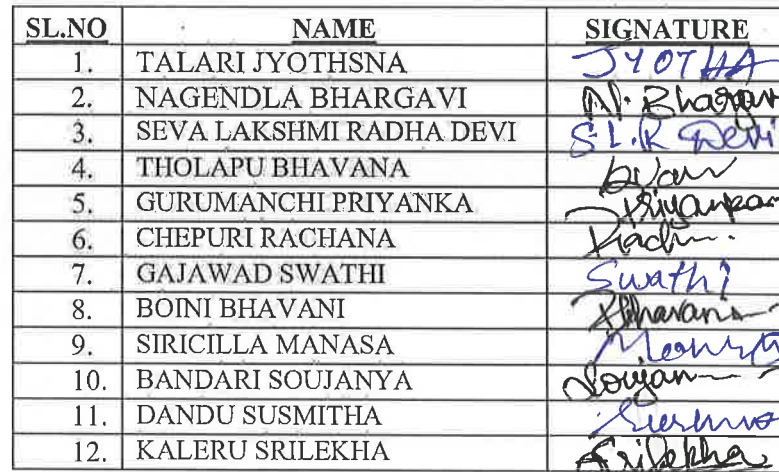 SL.NO NAME SIGNATURE
1. TALARI JYOTHSNA JYOTHA
2. NAGENDLA BHARGAVI N. Bhargavi
3. SEVA LAKSHMI RADHA DEVI S.L.R Devi
4. THOLAPU BHAVANA
5. GURUMANCHI PRIYANKA Priyanka
6. CHEPURI RACHANA
7. GAJAWAD SWATHI Swathi
8. BOINI BHAVANI Bhavani
9. SIRICILLA MANASA
10. BANDARI SOUJANYA
11. DANDU SUSMITHA
12. KALERU SRILEKHA Srilekha